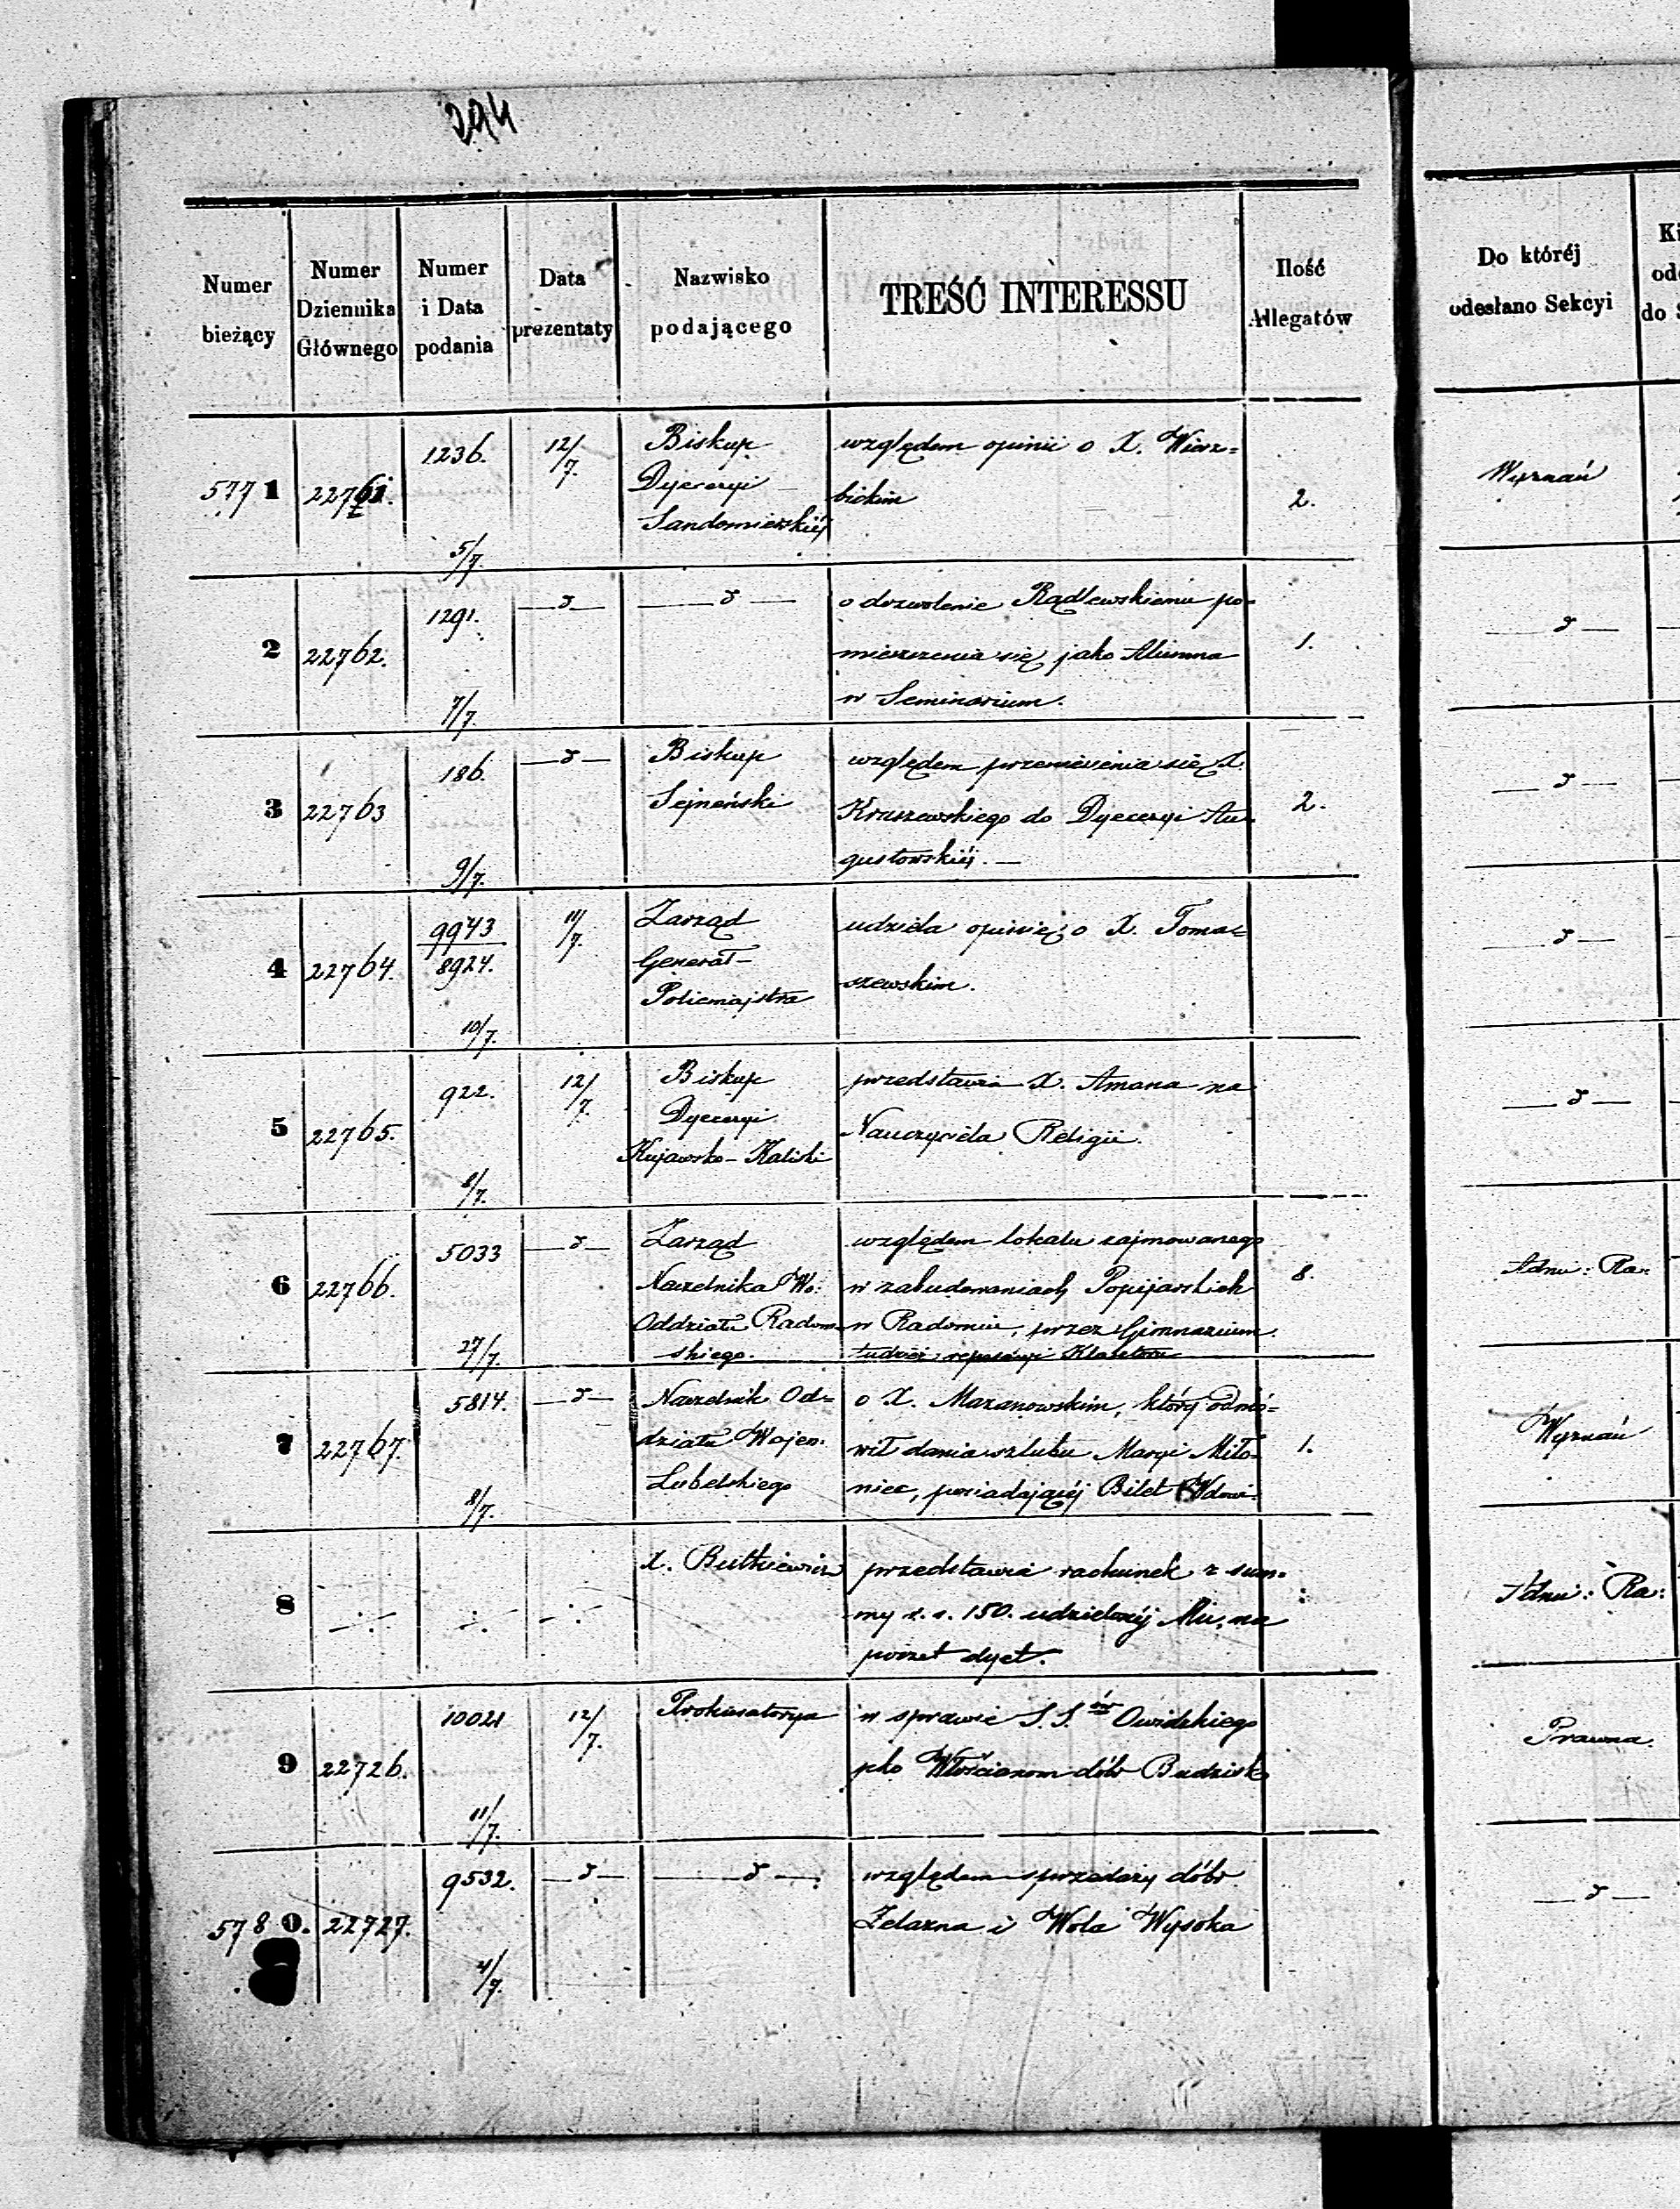 294
Numer bieżący
Numer Dziennika Głównego
Numer i Data podania
Data prezentaty
Nazwisko podającego
TREŚĆ INTERESSU
Ilość Allegatów
Do któréj odesłano Sekcyi
577 1
22761.
1236.
5/7.
12/7.
Biskup
Dyecezyi
Sandomierskiéj
względem opinii o X. Wierz=
bickim
2.
Wyznań
2
22762.
1291.
7/7.
—d—
—d—
o dozwolenie Rądlewskiemu po=
mieszczenia się jako Alumna
w Seminarium.
1.
—d—
3
22763
186.
9/7.
—d—
Biskup
Sejneński
względem przeniesienia się X.
Kraszewskiego do Dyecezyi Au=
gustowskiéj. —
2.
—d—
4
22764.
9943
8924.
10/7.
11/7.
Zarząd
Generał-
Policmajstra
udziela opinię o X. Toma=
szewskim.
—d—
5
22765.
922.
8/7.
12/7.
Biskup
Dyecezyi
Kujawsko-Kaliski
przedstawia X. Amana na
Nauczyciela Religii.
—d—
6
22766.
5033
27/7.
—d—
Zarząd
Naczelnika Wo:
Oddziału Radom
skiego.
względem lokalu zajmowanego
w zabudowaniach Popijarskich
w Radomiu, przez Gimnazium.
tudzież reparacyi Klasztoru
8.
Adm: Ra:
7
22767.
5814.
8/7.
—d—
Naczelnik Od=
działu Wojen:
Lubelskiego
o X. Mazanowskim, który odmó=
wił dania szlubu Maryi Miło=
niec, posiadającéj Bilet Wdowi.
1.
Wyznań
8
—:—
—:—
—:—
X. Butkiewicz
przedstawia rachunek z sum=
my r. s. 150. udzielonéj Mu, na
poczet dyet.
Adm: Ra:
9
22726.
10021
11/7.
12/7.
Prokuratorya
w sprawie S.S.ów Owidzkiego
pko Włościanom dóbr Budzisk
Prawna.
578 0.
22727.
9532.
4/7.
—d—
—d—
względem sprzedaży dóbr
Żelazna i Wola Wysoka
—d—